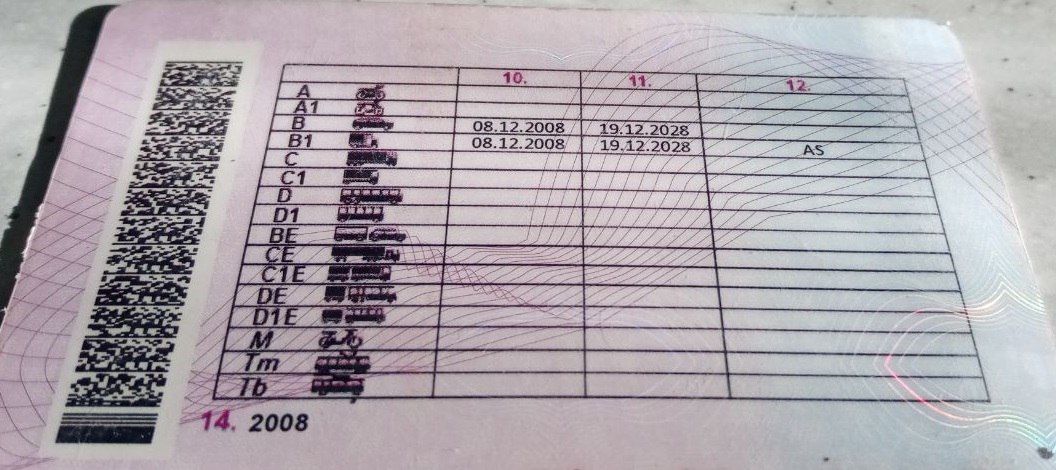 10. 11. 12.
A
A1
B 08.12.2008 19.12.2028
B1 08.12.2008 19.12.2028 AS
C
C1
D
D1
BE
CE
C1E
DE
D1E
M
Tm
Tb
14. 2008